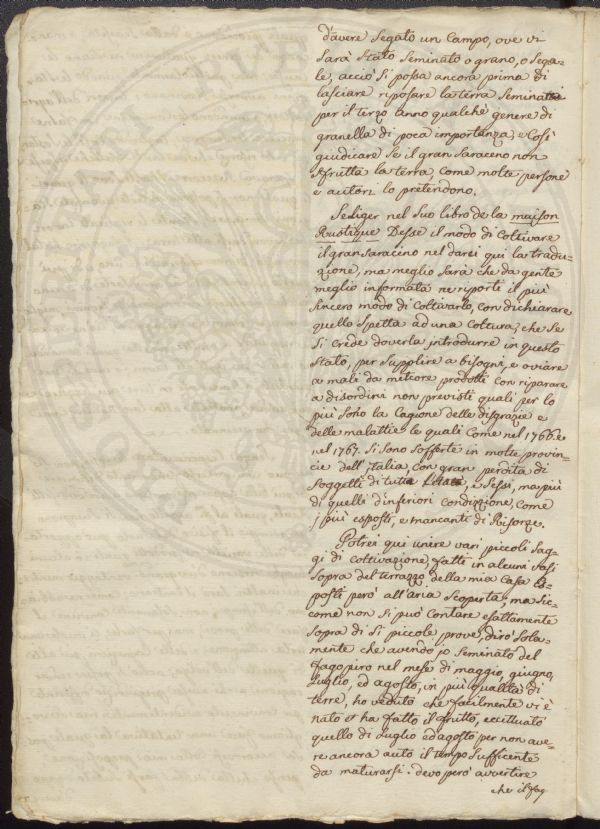 d'avere Segato un Campo, ove vi
Sarà Stato Seminato o grano, o Sega-
le, acciò Si possa ancora prima di
lasciare riposare la terra Seminarvi
per il terzo anno qualchè genere di
granella di poca importanza, e Così
giudicare Se il gran Saraceno non
Sfrutta la terra, come molte persone
e autori lo pretendono.
Sediger nel Suo libro de la maison
Rustique Desse il modo di Coltivare
il gran Saracino nel darci qui la tradu-
zione, ma meglio Sarà che da gente
meglio informata ne riporti il più
Sincero modo di Coltivarlo, con dichiarare
quello Spetta ad una Coltura, che Se
Si crede doverla introdurre in questo
Stato, per Supplire a bisogni, e oviare
a mali da meteore prodotti con riparare
a disordini non previsti quali per lo
più Sono la Cagione delle disgrazie e
delle malattie le quali Come nel 1766. e
nel 1767. Si Sono Sofferte in molte provin-
cie dell'italia, con gran perdita di
Soggetti di tutte, e Sessi, ma più
di quelli d'inferiori condizzione, Come
j più esposti, e mancanti di Risorze.
Potrei qui unire vari piccoli Sag-
gi di Coltivazione fatti in alcuni vasi
Sopra del terrazzo della mia Casa es-
posti però all'aria Scoperta; ma Sic-
come non Si può Contare esattamente
Sopra di Si piccole prove, dirò Sola-
mente che avendo jo Seminato del
fagopiro nel mese di maggio, giugno,
Luglio, ed agosto, in più qualità di
terre, ho veduto che facilmente vi è
nato et ha fatto il frutto, eccittuato
quello di Luglio ed agosto per non ave-
re ancora auto il tempo Sufficente
da maturarsi. devo però avvertire
che il fag